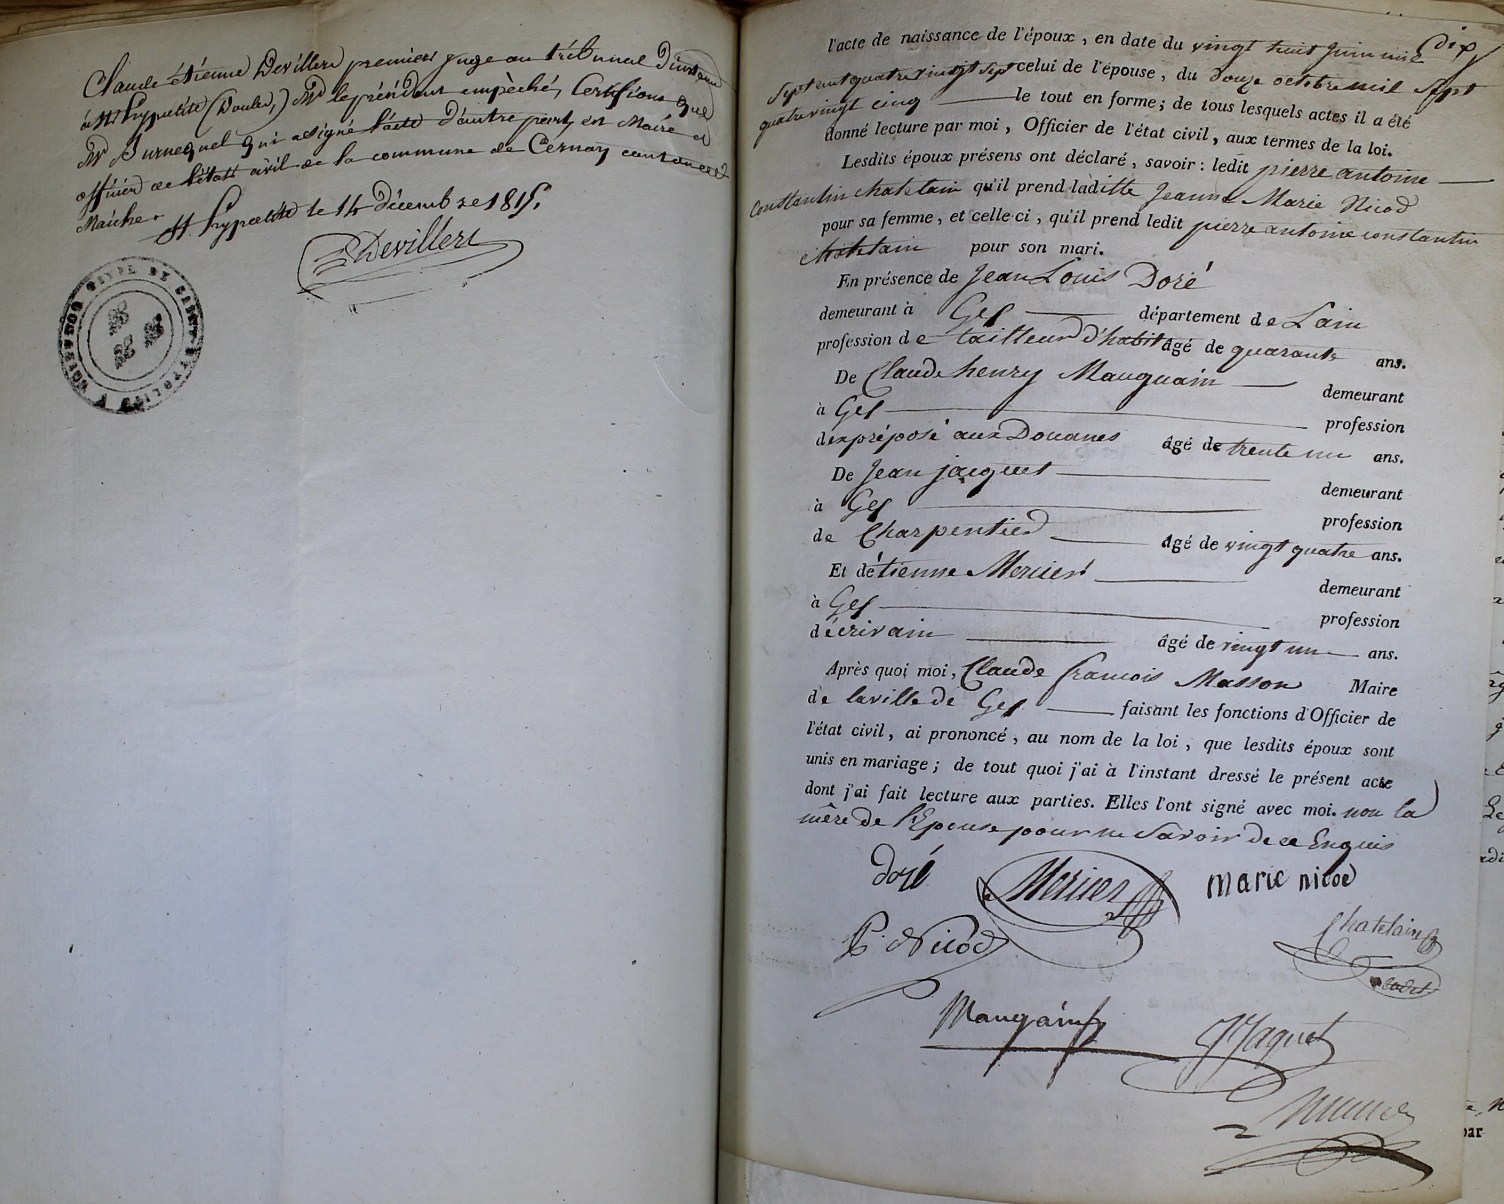 Claude étienne Devillers premiers juge au tribunal d'instance
à St hyppolite (Doubs,) Mr le président empèché, Certifions que
Mr Burnequel qui a signé l'acte d'autre part, est Maire et
officier de l'état civil de la commune de Cernay canton de
Maiche. St hyppolite le 14 décembre 1815.
Devillers
dix
l'acte de naissance de l'époux, en date du vingt huit juin mil
Sept cent quatre vingt sept celui de l'épouse, du Douze octobre mil Sept
quatre vingt cinq le tout en forme; de tous lesquels actes il a été
donné lecture par moi, Officier de l'état civil, aux termes de la loi.
Lesdits époux présens ont déclaré, savoir: ledit pierre antoine
Constantin chatelain qu'il prend laditte Jeanne Marie Nicod
pour sa femme, et celle-ci, qu'il prend ledit pierre antoine constantin
chatelain pour son mari.
En présence de Jean Louis Doré
demeurant à Gex département de Lain
profession de tailleur d'habit âgé de quarante ans.
De Claude henry Mauguain demeurant
à Gex profession
dexpréposé aux Douanes âgé de trente un ans.
De Jean jacquet demeurant
à Gex profession
de Charpentier âgé de vingt quatre ans.
Et détienne Mercier demeurant
à Gex profession
décrivain âgé de vingt un ans.
Après quoi moi, Claude francois Masson Maire
de la ville de Gex faisant les fonctions d'Officier de
l'état civil, ai prononcé, au nom de la loi, que lesdits époux sont
unis en mariage; de tout quoi j'ai à l'instant dressé le présent acte
dont j'ai fait lecture aux parties. Elles l'ont signé avec moi. non la
mère de l'Epouse pour ne Savoir de ce Enquis
doré Mercier marie nicod
P. Nicod Chatelain
cadet
Maugain J Jaquet